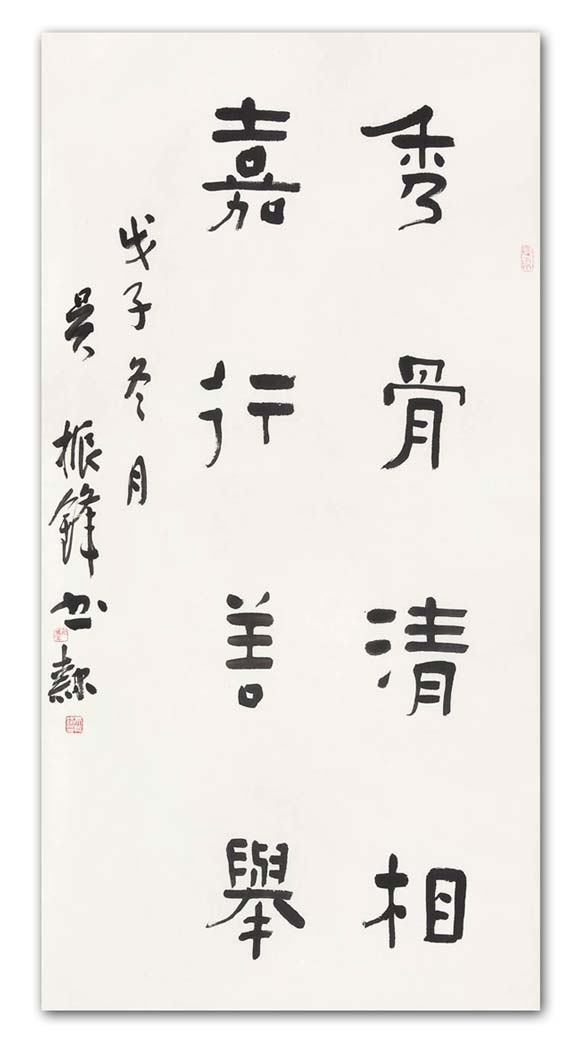 秀骨清相
嘉行善舉
戊子冬月
吳振鋒書隸